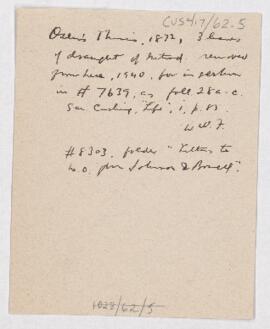 CUS417/62.5
Osler's Thesis, 1872, 3 leaves
of draught of Method removed
from here, 1940, for insertion
in # 7639, as foll. 28a-c.
See Cushing, "Life", i, p. 83.
W.W.F.
#8303, folder "Letters to
W.O. from Johnson & Bovell".
1028/62/5